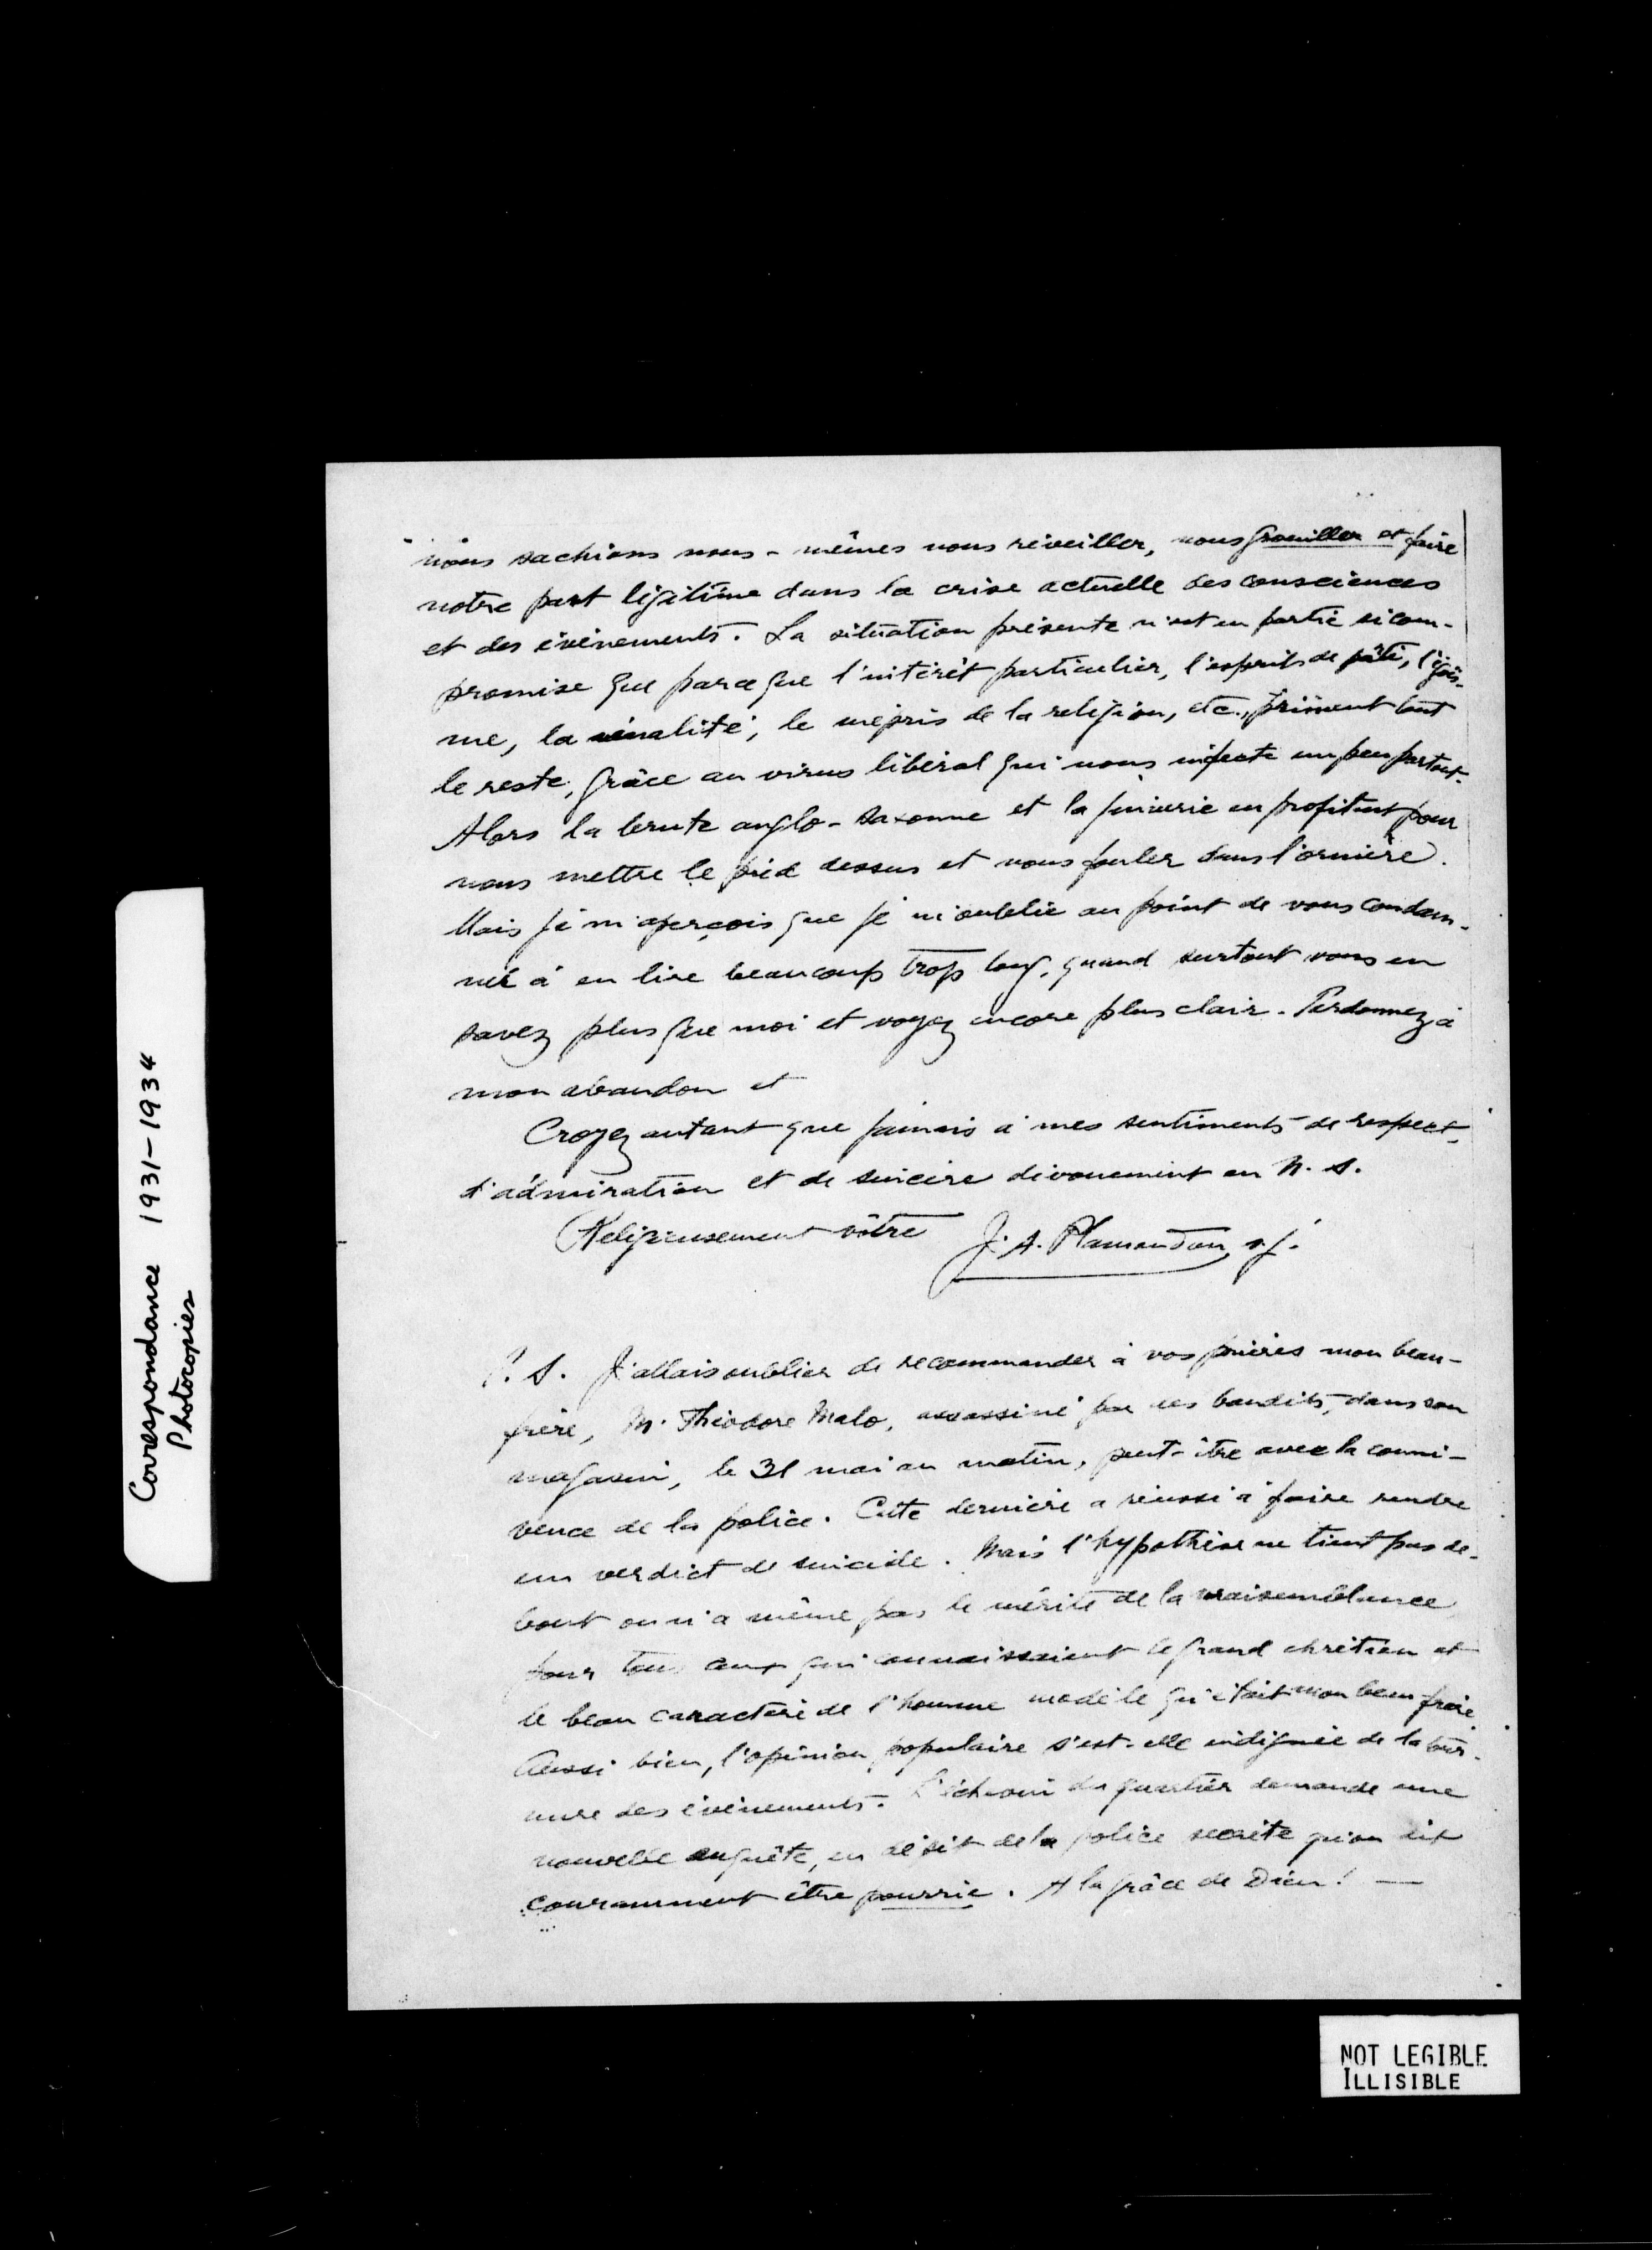 nous sachions nous-mêmes nous réveiller, nous grouiller et faire
notre part légitime dans la crise actuelle des consciences
et des événements. La situation présente n'est en partie si com-
promise que parce que l'intérêt particulier, l'esprit de parti, l'égoïs-
me, la vénalité, le mépris de la religion, etc., priment tout
le reste, grâce au virus libéral qui nous infecte un peu partout.
Alors la brute anglo-saxonne et la juiverie en profitent pour
nous mettre le pied dessus et nous fouler dans l'ornière.
Mais je m'aperçois que je m'oublie au point de vous condam-
ner à en lire beaucoup trop long, quand surtout vous en
savez plus que moi et voyez encore plus clair. Pardonnez à
mon abandon et
Croyez autant que jamais à mes sentiments de respect,
d'admiration et de sincère dévouement en N. S.
Religieusement vôtre J. A. Plamondon, s.j.
P. S. J'allais oublier de recommander à vos prières mon beau-
frère, M. Théodore Malo, assassiné par des bandits, dans son
magasin, le 31 mai au matin, peut-être avec la conni-
vence de la police. Cette dernière a réussi à faire rendre
un verdict de suicide. Mais l'hypothèse ne tient pas de-
bout ou n'a même pas le mérite de la vraisemblance
pour tous ceux qui connaissaient le grand chrétien et
le beau caractère de l'homme modèle qu'était mon beau-frère
Aussi bien, l'opinion populaire s'est-elle indignée de la tour-
nure des événements. L'échevin du quartier demande une
nouvelle enquête, en dépit de la police secrète qu'on dit
couramment être pourrie. A la grâce de Dieu! —
Correspondance 1931-1934
Photocopies
NOT LEGIBLE
ILLISIBLE